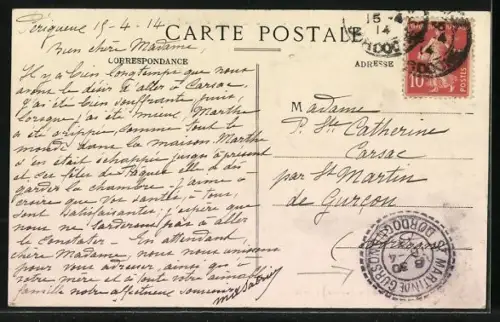 Périgueux 15-4-14
CARTE POSTALE
Bien chère Madame,
CORRESPONDANCE
ADRESSE
Il y a bien longtemps que nous
avons le désir d'aller à Carsac,
j'ai été bien souffrante, puis
lorsque j'ai été mieux, Marthe
a été grippée, comme tout le
monde dans la maison. Marthe
s'en était échappée jusqu'à présent
et ces fêtes de Pâques elle a dû
garder la chambre. J'aime à
croire que vos santés, à tous,
sont satisfaisantes; j'espère que
nous ne tarderons pas à aller
le constater. En attendant,
chère Madame, nous nous unissons
pour vous adresser, ainsi qu'à
votre mère et à toute votre aimable
famille notre affectueux souvenir
Madame
P. Ste Catherine
Carsac
par St Martin
de Gurçon
Dordogne
15-4
14
10
POSTES